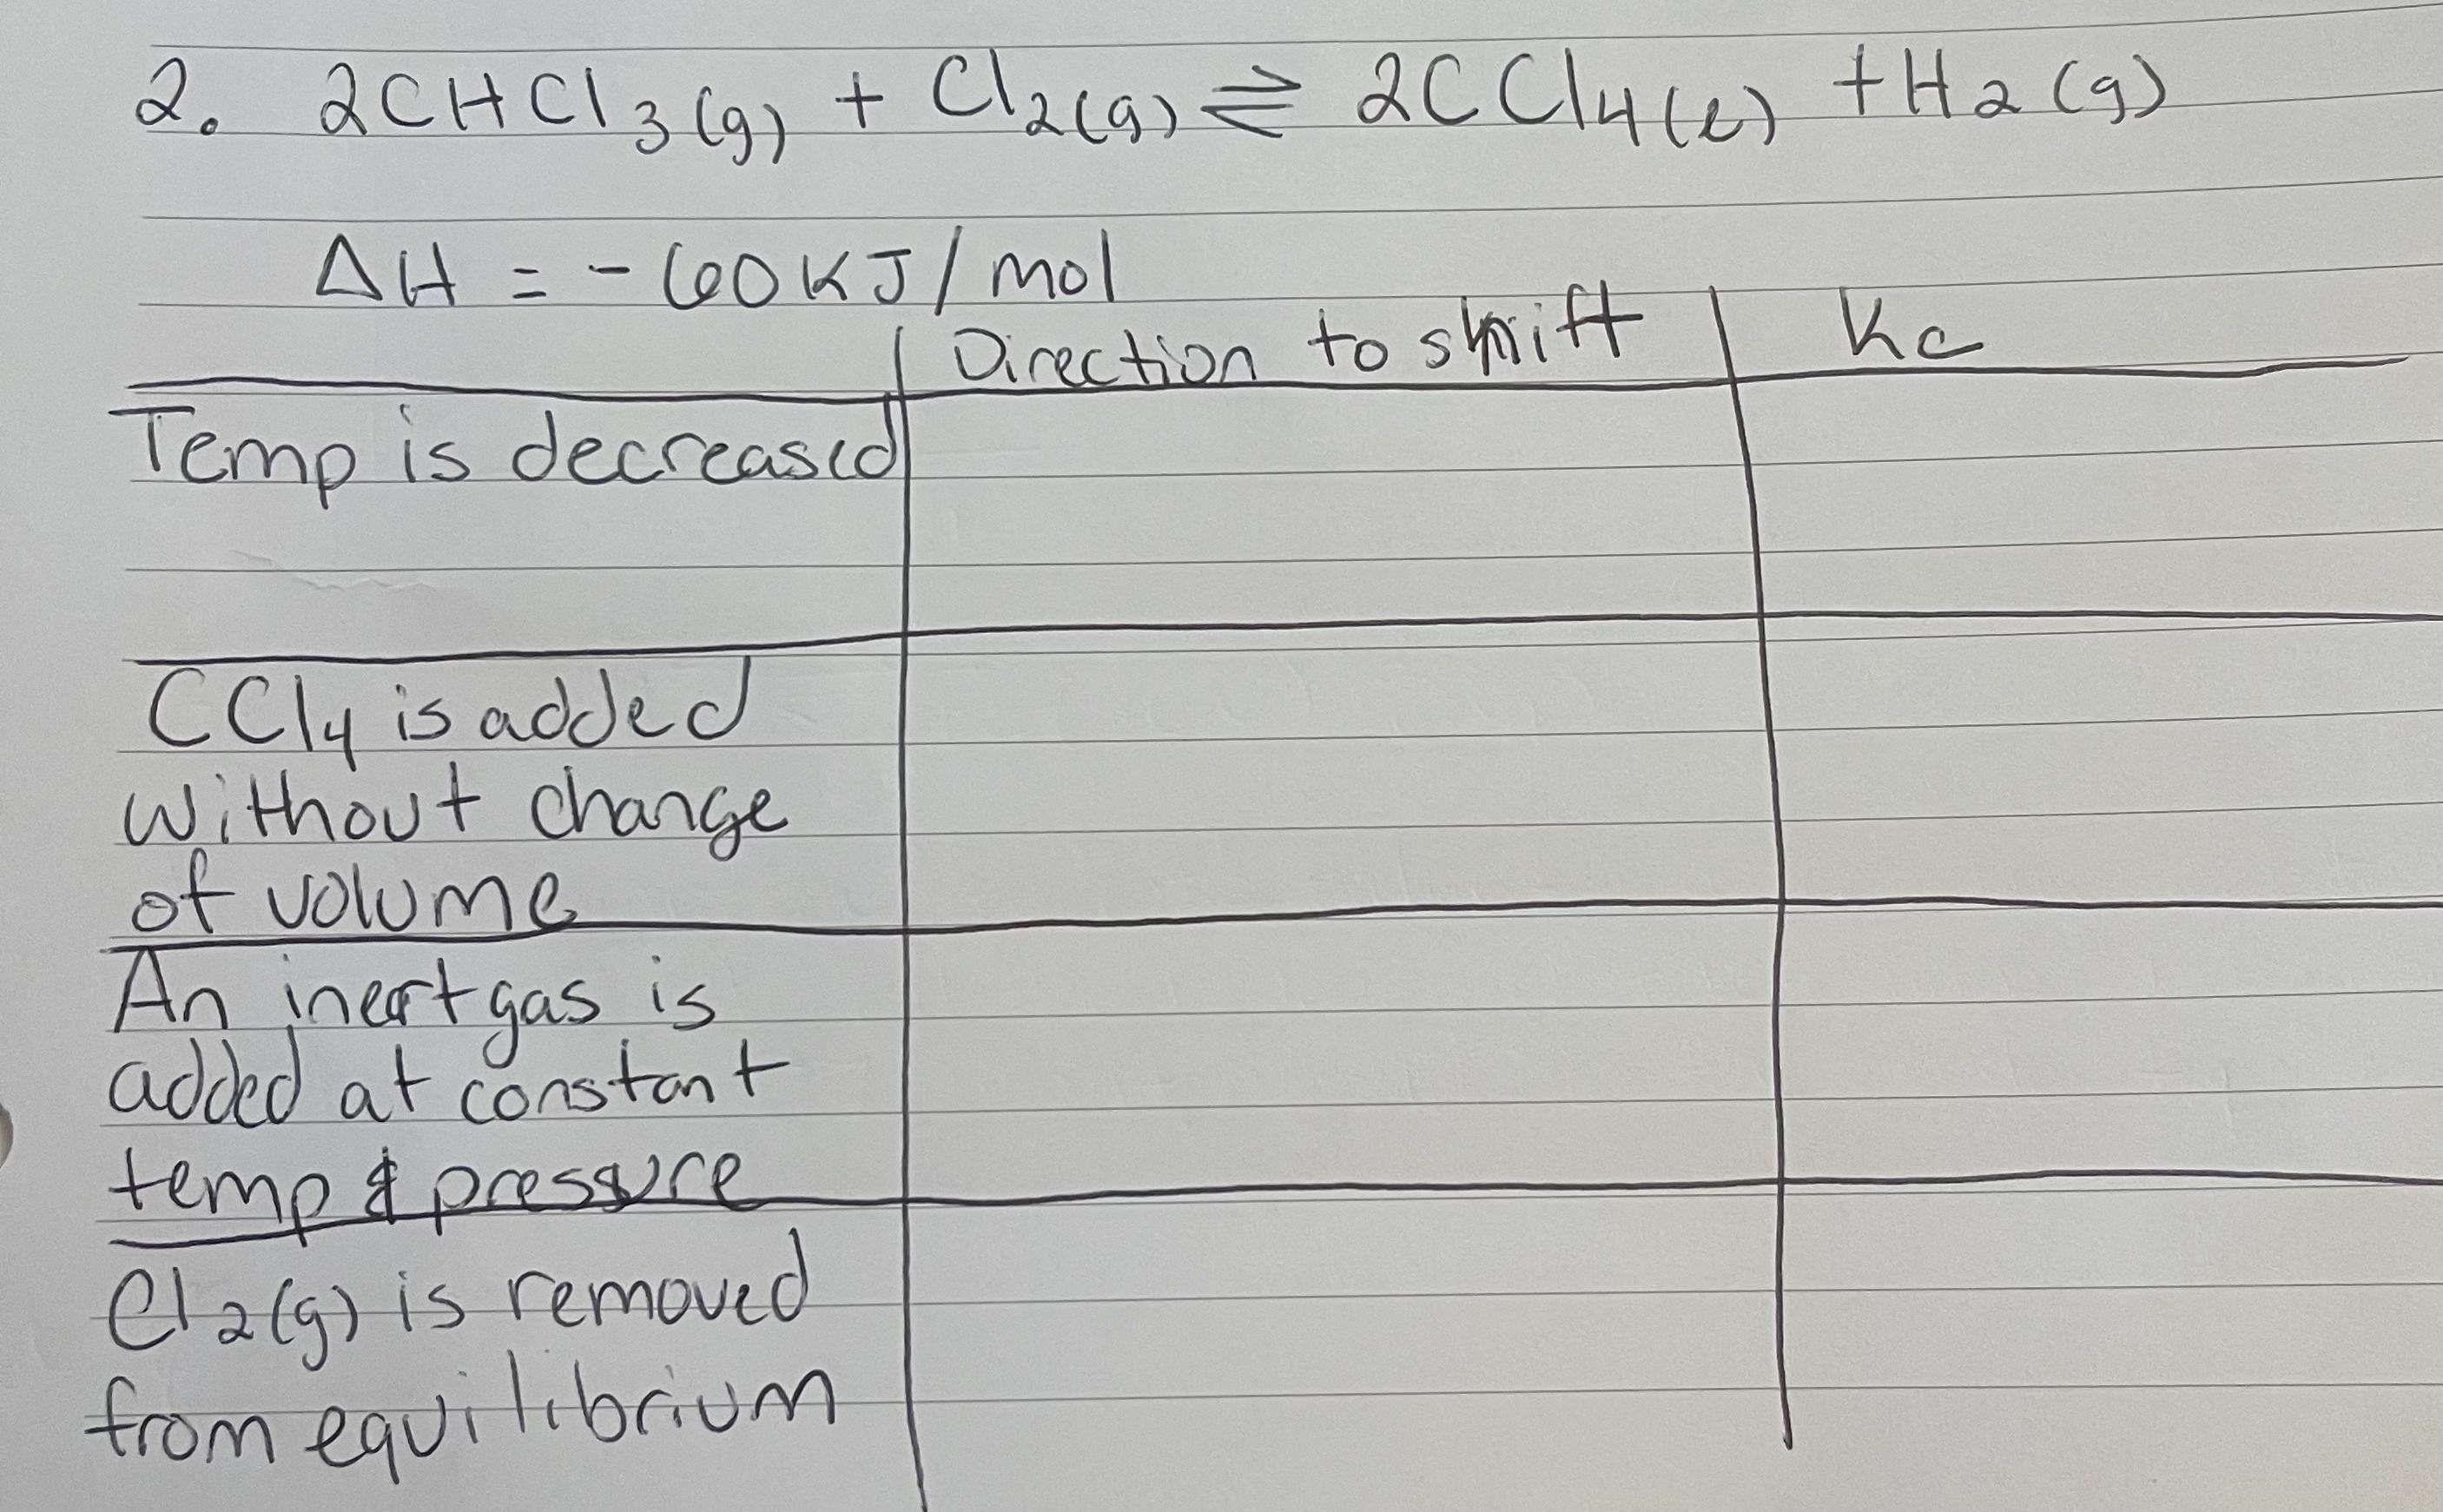 2. 2CHCl3(g) + Cl2(g) ⇌ 2CCl4(l) + H2(g)
ΔH = -60KJ/mol
Direction to shift Kc
Temp is decreased
CCl4 is added
without change
of volume
An inert gas is
added at constant
temp & pressure
Cl2(g) is removed
from equilibrium